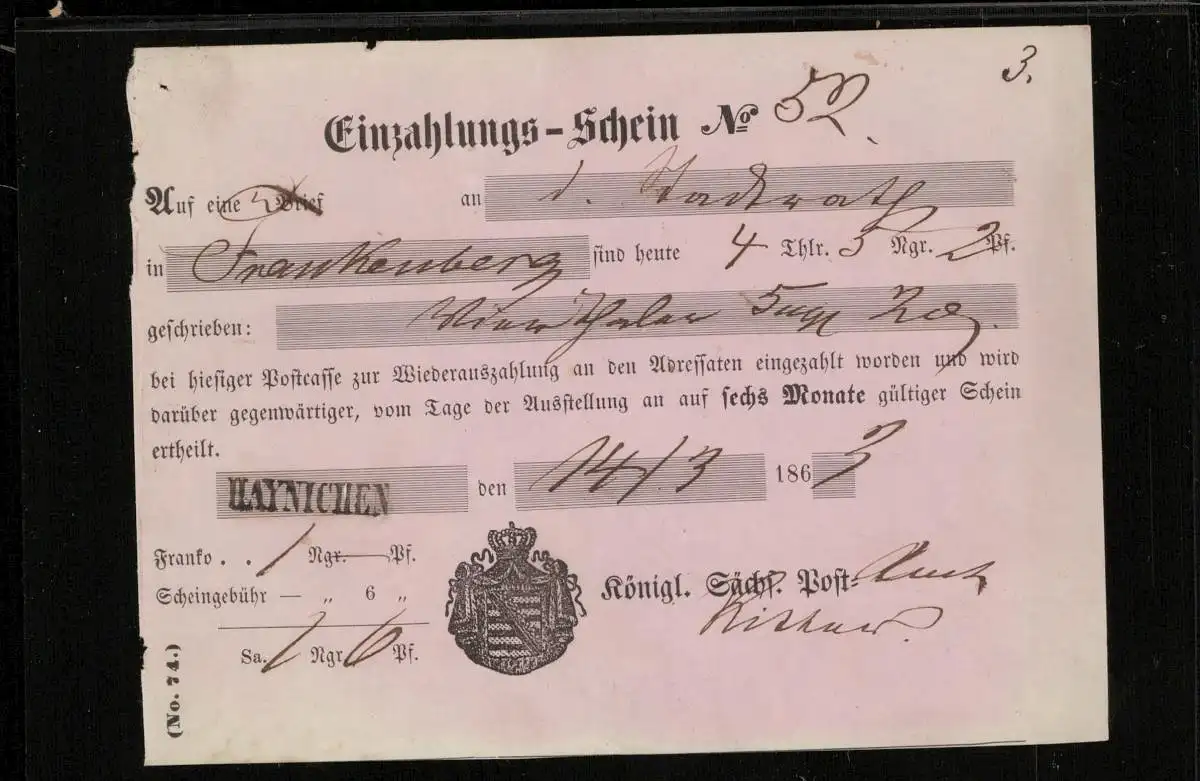 3.
Einzahlungs-Schein No 52.
Auf eine Brief an d. Stadtrath
in Frankenberg sind heute 4 Thlr. 5 Ngr. 2 Pf.
geschrieben: Vier Thaler 5 ngr 2 Pf.
bei hiesiger Postcasse zur Wiederauszahlung an den Adressaten eingezahlt worden und wird
darüber gegenwärtiger, vom Tage der Ausstellung an auf sechs Monate gültiger Schein
ertheilt.
HAYNICHEN den 14/3 1863
Franko . . 1 Ngr. — Pf.
Scheingebühr — „ 6 „
Königl. Sächs. Post-Amt
Sa. 1 Ngr. 6 Pf.
(No. 74.)